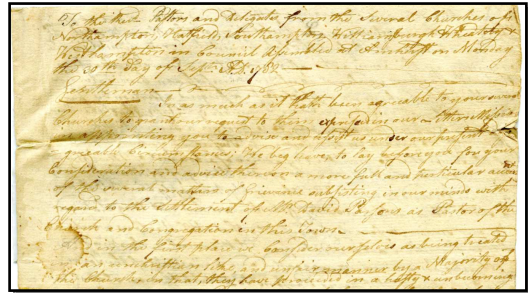 To the Revd. Pastors and Deligates from the Several Churches of
Northampton, Hatfield, Southampton, Williamsburgh Whately &
Westhampton in Council Assembled at Amherst on Monday
the Day of Sepr. AD. 1782
Gentlemen
In as much as it hath been agreeable to your
Churches to grant our request to them in our
you to advise and assist us under our present
Circumstances We beg leave to lay before you for your
Consideration and advice thereon a more full and particular
of the several matters of Grievance subsisting in our minds with
regard to the Settlement of Mr. David Parsons as Pastor of the
Church and Congregation in this Town
And in the first place we consider ourselves as being treated
in an and unfair manner by Majority of
the Church in that, they have proceeded in a hasty & unbecoming